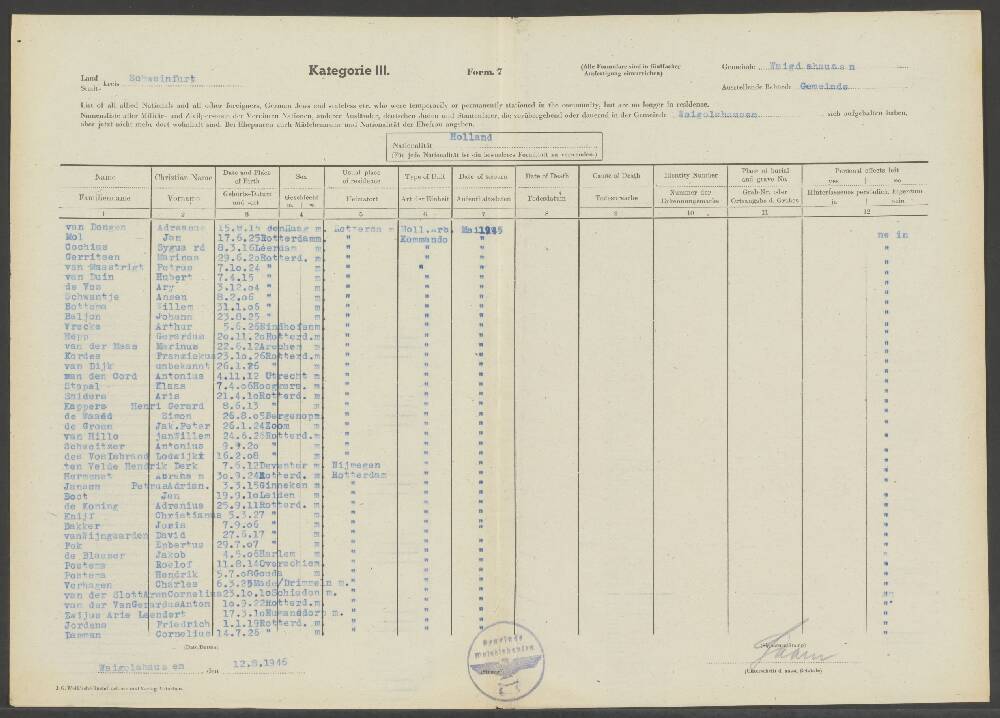 Kategorie III.
Form. 7
(Alle Formulare sind in fünffacher
Ausfertigung einzureichen)
Gemeinde
Land
Stadt-
kreis Schweinfurt
Ausstellende Behörde Gemeinde
List of all allied Nationals and all other foreigners, German Jews and stateless etc. who were temporarily or permanently stationed in the community, but are no longer in residence.
Namensliste aller Militär- und Zivilpersonen der Vereinten Nationen, anderer Ausländer, deutschen Juden und Staatenloser, die vorübergehend oder dauernd in der Gemeinde Waigolshausen sich aufgehalten haben,
aber jetzt nicht mehr dort wohnhaft sind. Bei Ehepaaren auch Mädchenname und Nationalität der Ehefrau angeben.
Nationalität Holland
(Für jede Nationalität ist ein besonderes Formblatt zu verwenden)
Name Christian Name Date and Place of Birth Sex Usual place of residence Type of Unit Date of sejourn Date of Death Cause of Death Identity Number Place of burial and grave No. Personal effects left yes no
Familienname Vorname Geburts-Datum und -ort Geschlecht m. w. Heimatort Art der Einheit Aufenthaltsdaten Todesdatum Todesursache Nummer der Erkennungsmarke Grab-Nr. oder Ortsangabe d. Grabes Hinterlassenes persönlich. Eigentum ja nein
1 2 3 4 5 6 7 8 9 10 11 12
van Dongen 15.8.14 den Haag m Rotterdam Holl.Arb. Mai 1945
Mol Jan 17.6.25 Rotterdam m Kommando nein
Cochius 8.3.16 Leerdam m " " " "
Gerritsen Marinus 29.6.20 Rotterd. m " " " "
van Maastrigt Petrus 7.10.24 " m " " " "
van Duin Hubert 7.4.15 " m " " " "
de Vos Ary 3.12.04 " m " " " "
Schwantje Ansen 8.2.06 " m " " " "
Bottema Willem 31.1.06 " m " " " "
Baljon Johann 23.8.25 " m " " " "
Vrecks Arthur 5.6.26 Eindhofen m " " " "
Hepp Gerardus 20.11.20 Rotterd. m " " " "
van der Maas Marinus 22.6.12 m " " " "
Kordes Franziskus 23.10.26 Rotterd. m " " " "
van Dijk unbekannt 26.1.26 " m " " " "
van den Oord Antonius 4.11.12 Utrecht m " " " "
Stapel Klaas 7.4.06 m " " " "
Sniders Aris 21.4.10 Rotterd. m " " " "
Kappers Henri Gerard 8.6.13 " m " " " "
de Waard Simon 26.8.05 Bergenopm. " " " "
de Groen Jak.Peter 26.1.24 Zoom m " " " "
van Hillo janWillem 24.6.26 Rotterd. m " " " "
Schweitzer Antonius 9.9.20 " m " " " "
Lodwijk 16.2.08 " m " " " "
ten Velde Hendrik Derk 7.6.12 Deventer m Nijmegen " " "
Abraham 30.9.24 Rotterd. m Rotterdam " " "
Jansen PetrusAdrian. 3.3.15 Ginneken m " " " "
Boot Jan 19.9.10 Leiden m " " " "
de Koning Adrenius 25.9.11 Rotterd. m " " " "
Knijf Christianus 5.3.27 " m " " " "
Bakker Josis 7.9.06 " m " " " "
vanWijngaarden David 27.6.17 " m " " " "
Pok Egbertus 29.7.07 " m " " " "
de Blaeser Jakob 4.5.06 Harlem m " " " "
Postema Roelof 11.8.14 Overschiem. " " " "
Postema Hendrik 5.7.08 Gouda m " " " "
Verhagen Charles 6.3.25 Made/Drimmeln m. " " " "
van der Slott ArenCornelius 23.10.10 Schiedon m. " " " "
van der VenGerardusAnton 10.9.22 Rotterd. m. " " " "
Zwijus Arie Leendert 17.3.10 m. " " " "
Jordens Friedrich 1.1.19 Rotterd. m " " " "
Damman Cornelius 14.7.26 " m " " " "
(Date,Datum)
Waigolshausen, den 12.8.1946
Gemeinde
Waigolshausen
(Unterschrift d. ausst. Behörde)